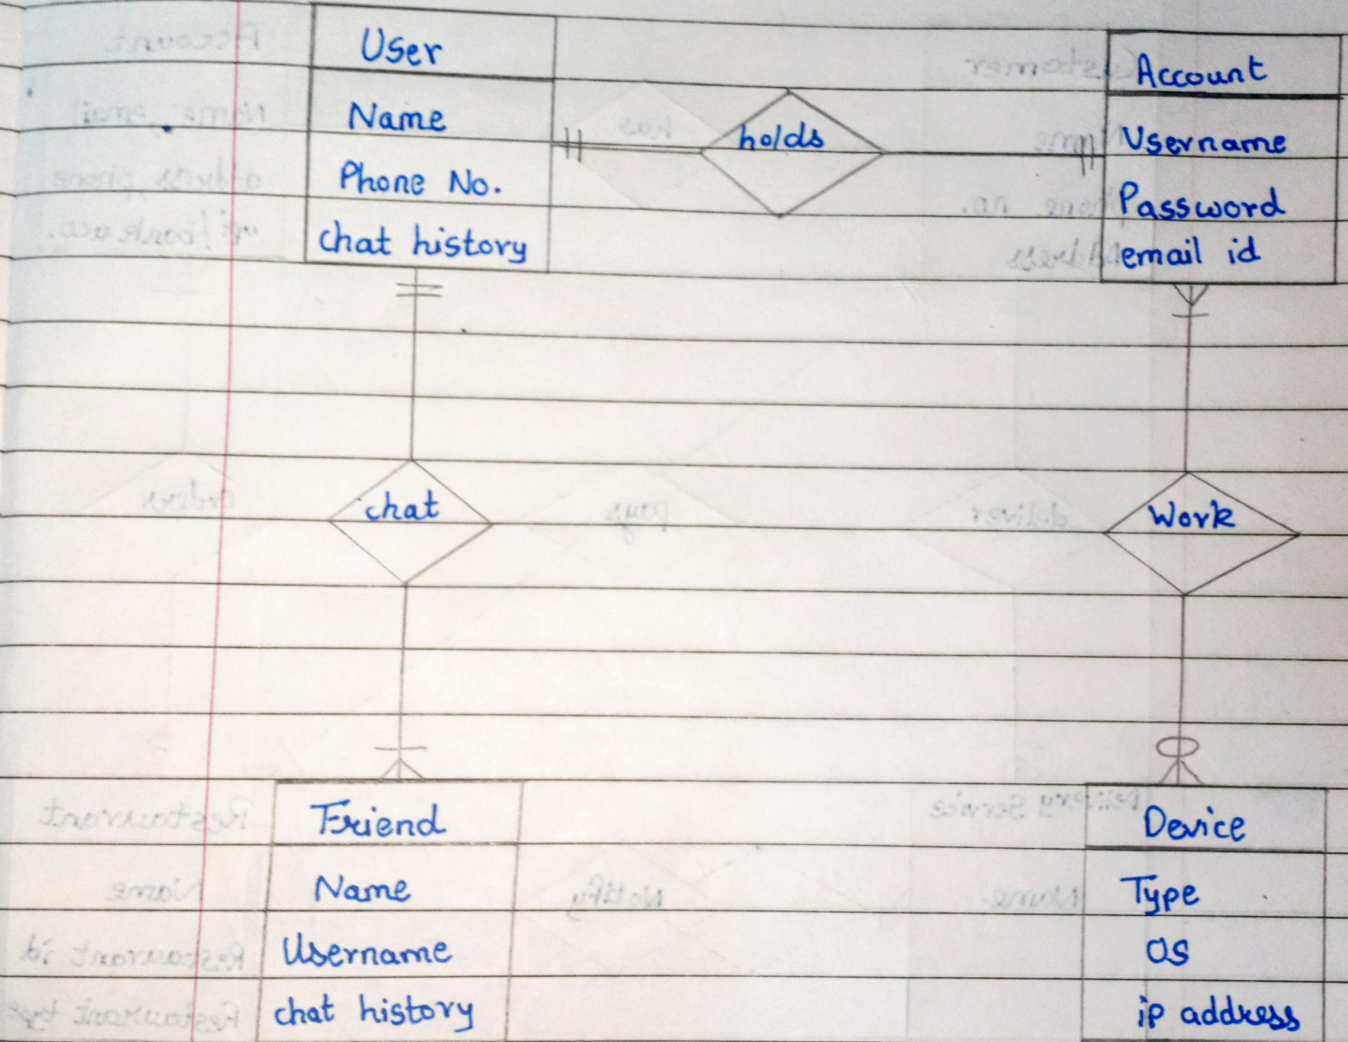 User
Name
Phone No.
chat history
holds
Account
Username
Password
email id
chat
Work
Friend
Name
Username
chat history
Device
Type
OS
ip address